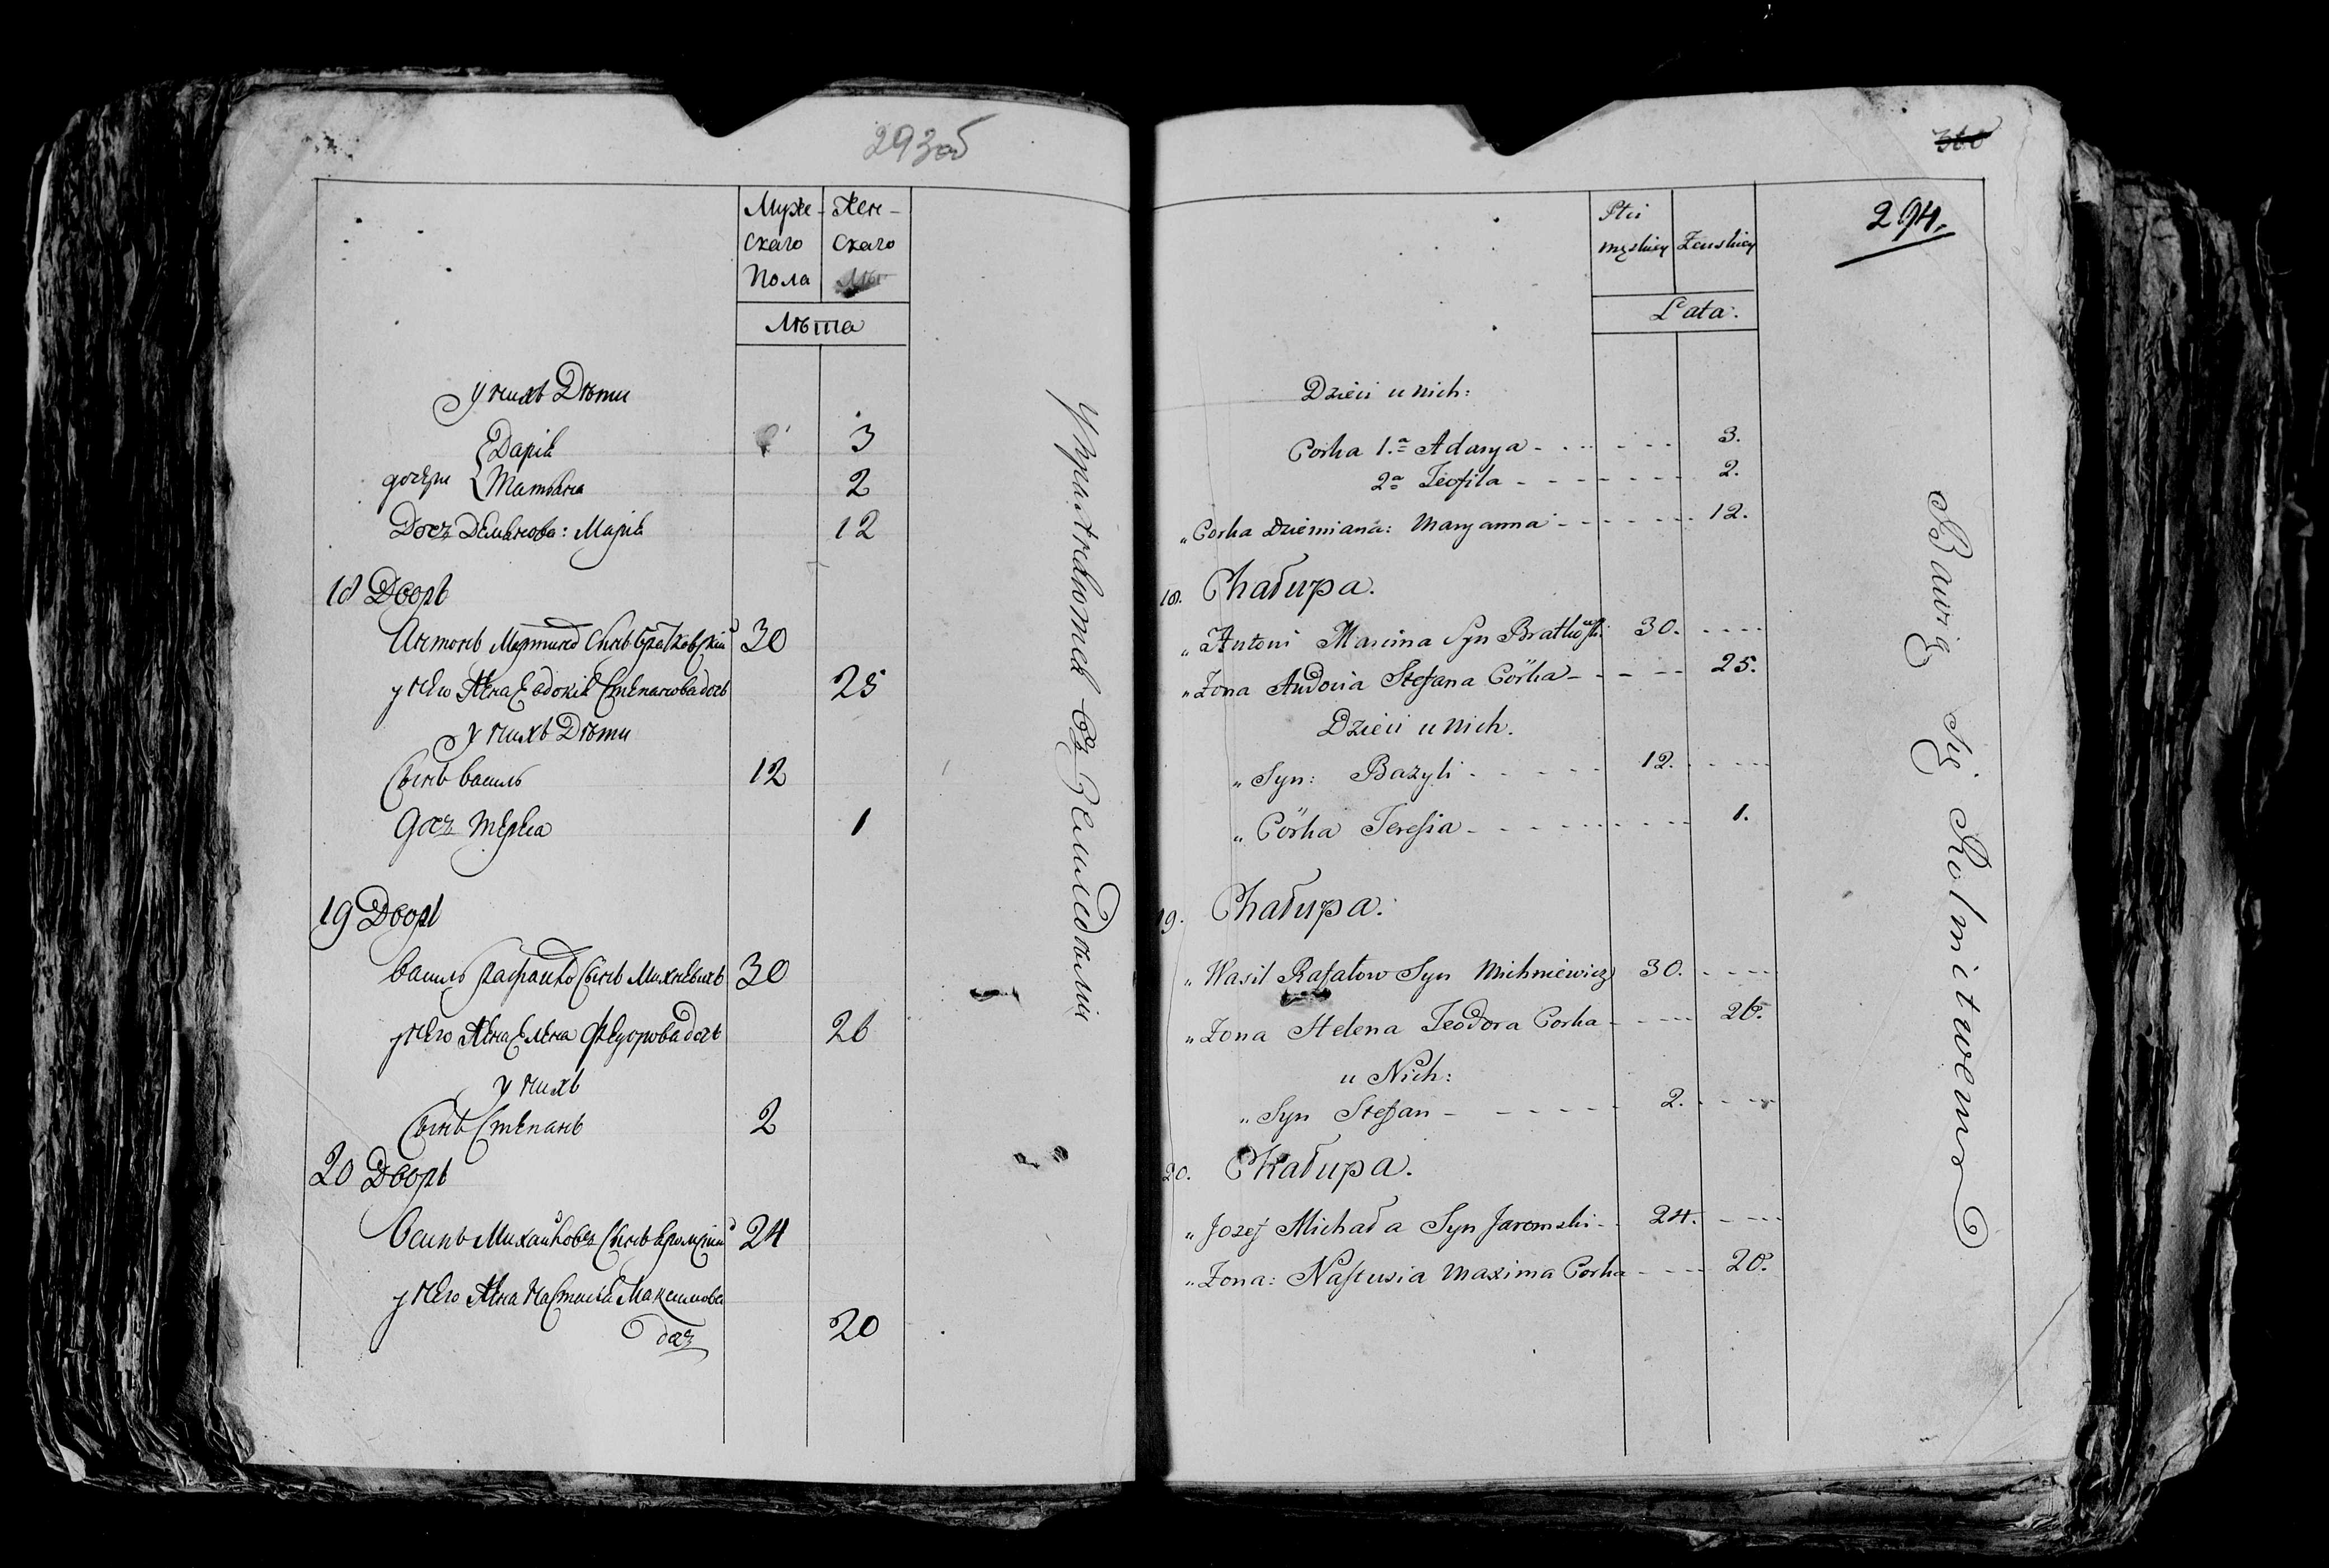 293об
Муже- Жен-
скаго скаго
Пола
Лѣта
у нихъ Дѣти
Дарія 3
дочери Татьяна 2
Дочь Демьянова: Марія 12
18 Дворъ
Антонъ Мартиновъ Сынъ Братковскій 30
у него Жена Евдокія Степанова дочь 25
у нихъ Дѣти
Сынъ василь 12
Дочь Тереса 1
19 Дворъ
василь Рафаловъ Сынъ Михневичъ 30
у него Жена Елена Федорова дочь 26
у нихъ
Сынъ Степанъ 2
20 Дворъ
Осипъ Михайловъ Сынъ Яромскій 24
у него Жена Настасія Максимова
дочь 20
Упражняютея въ Земледѣліи
360
294.
Płci
męskiey Żenskiey
Lata.
Dzieci u Nich:
Corka 1.a Adarya 3.
2a Teofila 2.
" Corka Dziemiana: Maryanna 12.
18. Chałupa.
" Antoni Marcina Syn Bratkowski 30.
" Żona Audocia Stefana Córka 25.
Dzieci u Nich.
" Syn: Bazyli 12.
" Córka Teresia 1.
19. Chałupa.
" Wasil Rafałow Syn Michniewicz 30.
" Żona Helena Teodora Corka 26.
u Nich:
" Syn Stefan 2.
20. Chałupa.
" Jozef Michała Syn Jaromski 24.
" Żona: Nastusia Maxima Corka 20.
Bawią się Rolnictwem